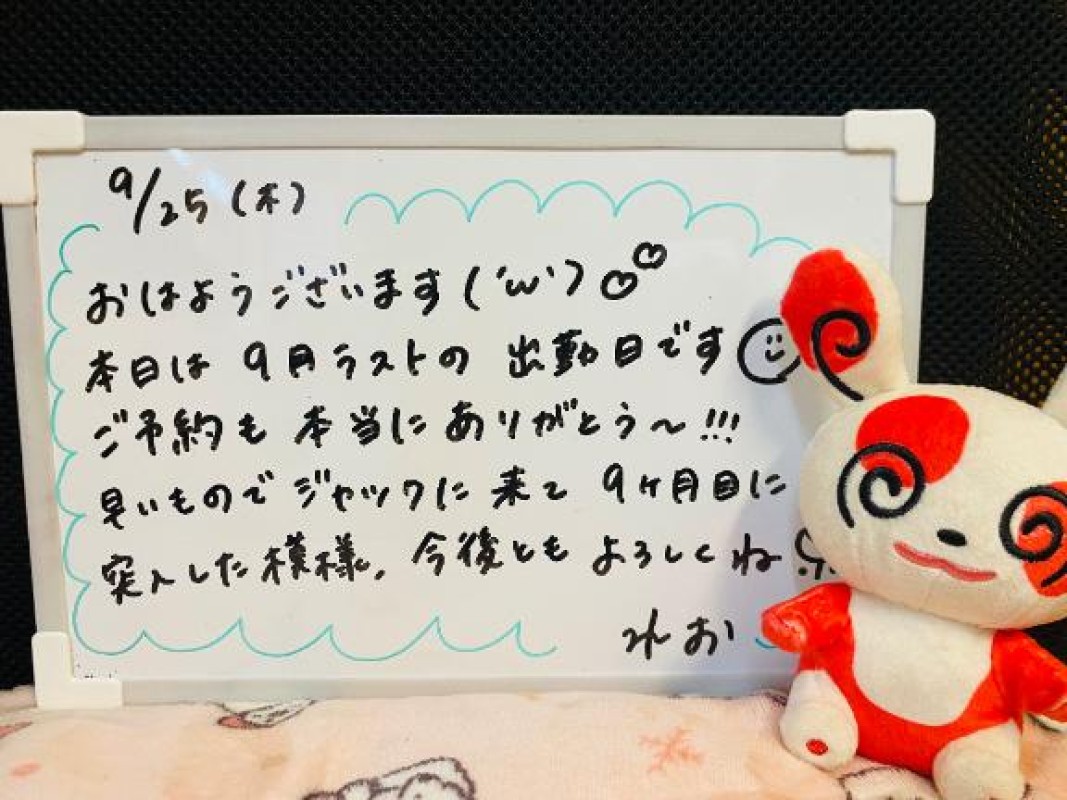 9/25(木)
おはようございます('ω')♡♡
本日は9月ラストの出勤日です
ご予約も本当にありがとう〜!!!
早いものでジャックに来て9ヶ月目に
突入した模様。今後ともよろしくね
れお